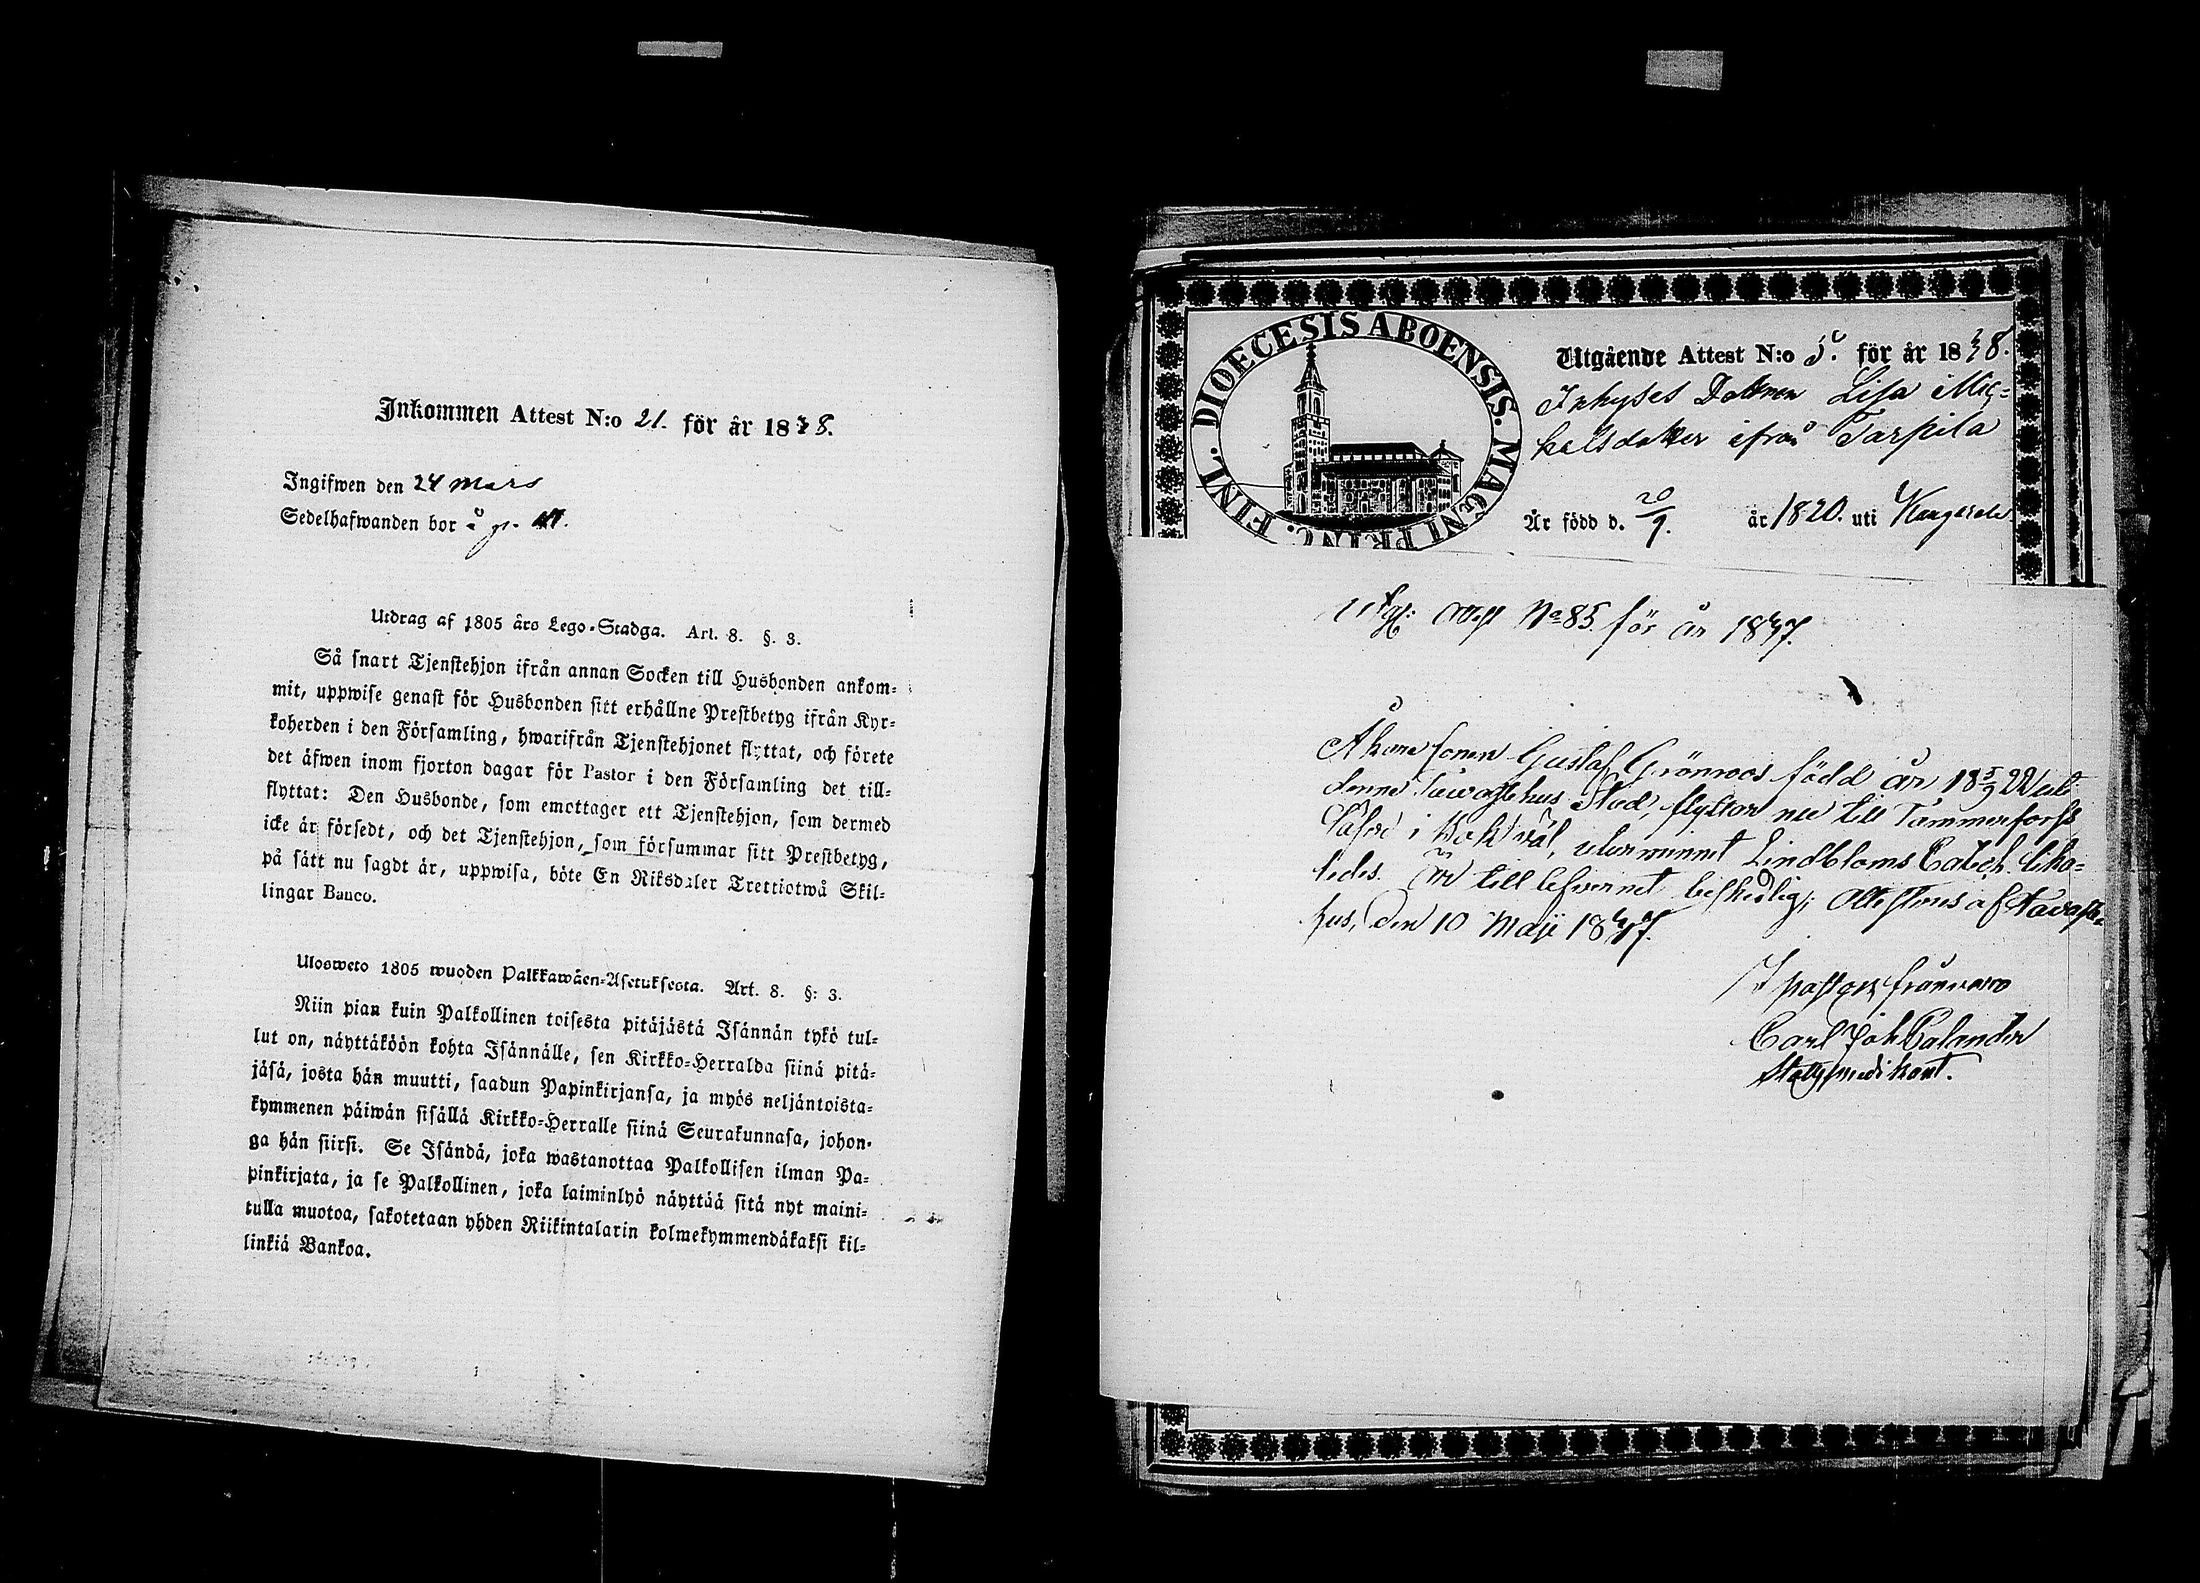 Inkommen Attest N:o 21. för år 1848.
Ingifwen den 24 Mars
Sedelhafwanden bor å
Utdrag af 1805 års Lego-Stadga. Art. 8. §. 3.
Så snart Tjenstehjon ifrån annan Socken till Husbonden ankom-
mit, uppwise genast för Husbonden sitt erhållne Prestbetyg ifrån Kyr-
koherden i den Församling, hwarifrån Tjenstehjonet flyttat, och förete
det äfwen inom fjorton dagar för Pastor i den Församling det till-
flyttat: Den Husbonde, som emottager ett Tjenstehjon, som dermed
icke är försedt, och det Tjenstehjon, som försummar sitt Prestbetyg,
på sätt nu sagdt är, uppwisa, böte En Riksdaler Trettiotwå Skil-
lingar Banco.
Ulosweto 1805 wuoden Palkkawäen-Asetuksesta. Art. 8. §: 3.
Niin pian kuin Palkollinen toisesta pitäjästä Isännän tykö tul-
lut on, näyttäköön kohta Isännälle, sen Kirkko-Herralda siinä pitä-
jäsä, josta hän muutti, saadun Papinkirjansa, ja myös neljäntoista-
kymmenen päiwän sisällä Kirkko-Herralle siinä Seurakunnasa, johon-
ga hän siirsi. Se Isändä, joka wastanottaa Palkollisen ilman Pa-
pinkirjata, ja se Palkollinen, joka laiminlyö näyttää sitä nyt maini-
tulla muotoa, sakotetaan yhden Riikintalarin kolmekymmendäkaksi kil-
linkiä Bankoa.
DIOECESIS ABOENSIS. MAGNI PRINC. FINL.
Utgående Attest N:o 5. för år 1848.
Inhyses Dottren Lisa Mic-
kelsdotter ifrån Tarpila
Är född d. 20/9. år 1820. uti Kangasala
Utg: Att No 85. för år 1847.
Åkaresonen Gustaf Grönroos född år 18 5/9 22 uti
denne Tawastehus Stad, flyttar nu till Tammerfors
i bok wäl, Lindbloms Catech. lika-
ledes. Är till lefwernet beskedlig; Attesteras af Tavaste-
hus, den 10 Maji 1847.
I pastoris frånvaro
Carl Joh Calander